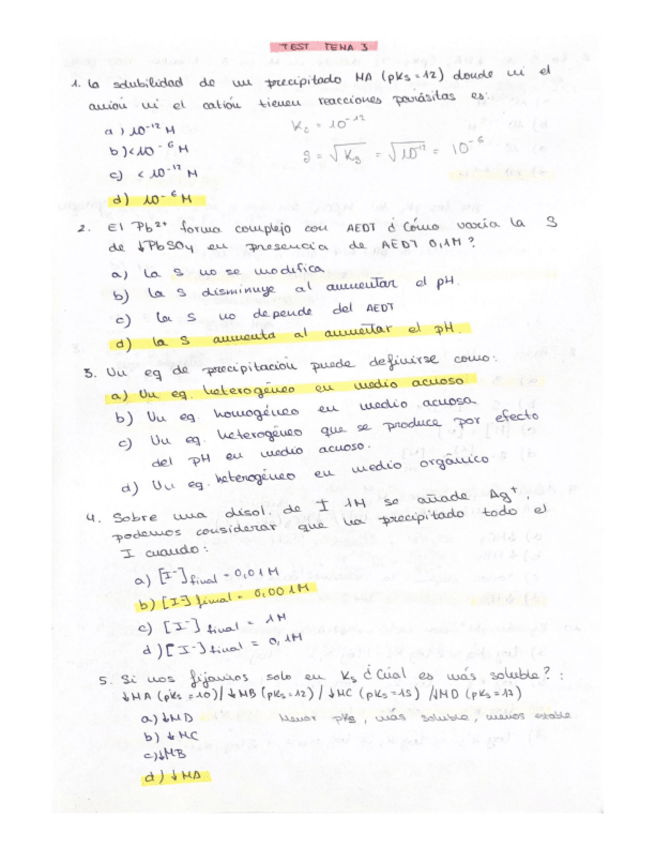 TEST TEMA 3
1. La solubilidad de un precipitado MA (pKs=12) donde ni el
anión ni el catión tienen reacciones parásitas es:
a) 10⁻¹² M
b) <10⁻⁶ M
c) < 10⁻¹² M
d) 10⁻⁶ M
Ks = 10⁻¹²
S = √Ks = √10⁻¹² = 10⁻⁶
2. El Pb²⁺ forma complejo con AEDT ¿Cómo varía la S
de ↓PbSO4 en presencia de AEDT 0,1M?
a) La S no se modifica
b) La S disminuye al aumentar el pH.
c) La S no depende del AEDT
d) La S aumenta al aumentar el pH.
3. Un eq de precipitación puede definirse como:
a) Un eq. heterogéneo en medio acuoso
b) Un eq. homogéneo en medio acuosa
c) Un eq. heterogéneo que se produce por efecto
del pH en medio acuoso.
d) Un eq. heterogéneo en medio orgánico
4. Sobre una disol. de I 1M se añade Ag⁺.
podemos considerar que ha precipitado todo el
I cuando:
a) [I⁻] final = 0,01M
b) [I⁻] final = 0,001M
c) [I⁻] final = 1M
d) [I⁻] final = 0,1M
5. Si nos fijamos solo en Ks ¿Cuál es más soluble?:
↓MA (pKs = 10)/ ↓MB (pKs=12) / ↓MC (pKs=15) / ↓MD (pKs=17)
a) ↓MD
Menor pKs, más soluble, menos estable
b) ↓MC
c) ↓MB
d) ↓MA